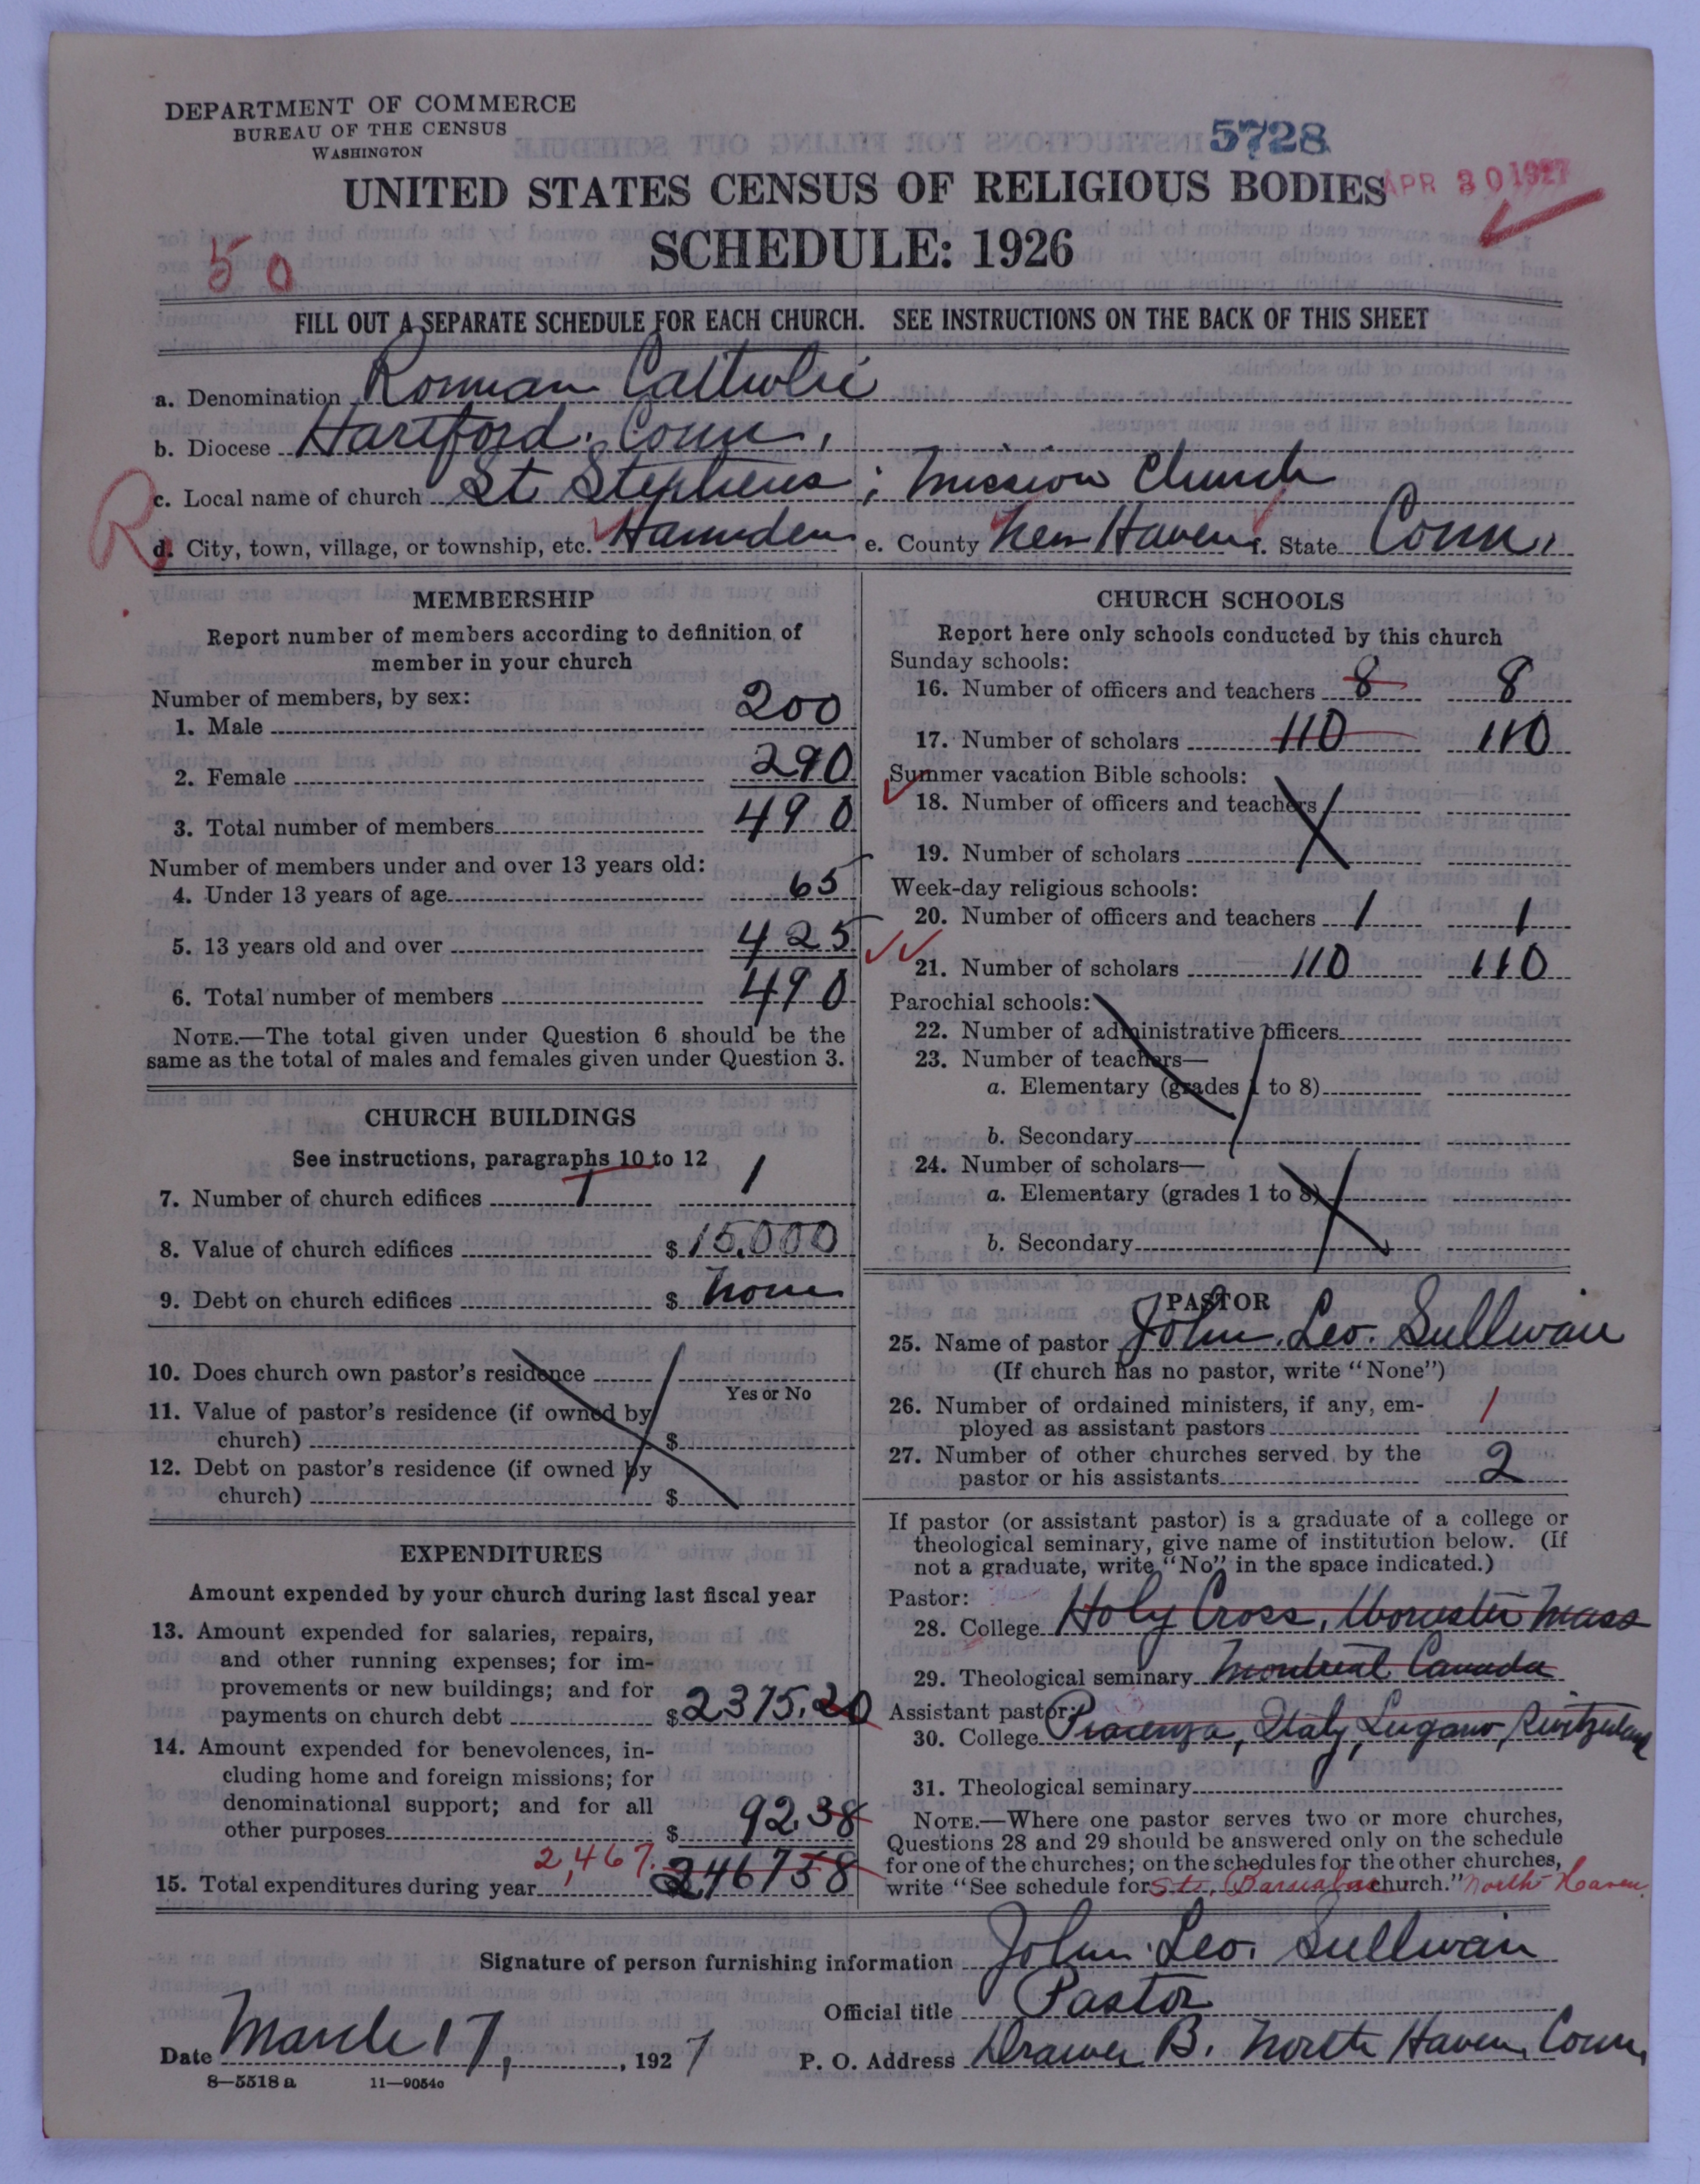 DEPARTMENT OF COMMERCE
BUREAU OF THE CENSUS
WASHINGTON
5728
APR 30 1927
UNITED STATES CENSUS OF RELIGIOUS BODIES
SCHEDULE: 1926
50
FILL OUT A SEPARATE SCHEDULE FOR EACH CHURCH. SEE INSTRUCTIONS ON THE BACK OF THIS SHEET
a. Denomination Roman Catholic
b. Diocese Hartford, Conn.,
c. Local name of church St. Stephens; Mission Church
R
d. City, town, village, or township, etc. Hamden e. County New Haven f. State Conn.
MEMBERSHIP
Report number of members according to definition of
member in your church
Number of members, by sex:
1. Male 200
2. Female 290
3. Total number of members 490
Number of members under and over 13 years old:
4. Under 13 years of age 65
5. 13 years old and over 425
6. Total number of members 490
NOTE.—The total given under Question 6 should be the
same as the total of males and females given under Question 3.
CHURCH BUILDINGS
See instructions, paragraphs 10 to 12
7. Number of church edifices 1 1
8. Value of church edifices $ 15.000
9. Debt on church edifices $ none
10. Does church own pastor's residence
Yes or No
11. Value of pastor's residence (if owned by
church) $
12. Debt on pastor's residence (if owned by
church) $
EXPENDITURES
Amount expended by your church during last fiscal year
13. Amount expended for salaries, repairs,
and other running expenses; for im-
provements or new buildings; and for
payments on church debt $ 2375.20
14. Amount expended for benevolences, in-
cluding home and foreign missions; for
denominational support; and for all
other purposes $ 92.38
2,467.
15. Total expenditures during year 246758
CHURCH SCHOOLS
Report here only schools conducted by this church
Sunday schools:
16. Number of officers and teachers 8 8
17. Number of scholars 110 110
Summer vacation Bible schools:
18. Number of officers and teachers
19. Number of scholars
Week-day religious schools:
20. Number of officers and teachers 1 1
21. Number of scholars 110 110
Parochial schools:
22. Number of administrative officers
23. Number of teachers—
a. Elementary (grades 1 to 8)
b. Secondary
24. Number of scholars—
a. Elementary (grades 1 to 8)
b. Secondary
PASTOR
25. Name of pastor John Leo. Sullivan
(If church has no pastor, write "None")
26. Number of ordained ministers, if any, em-
ployed as assistant pastors 1
27. Number of other churches served by the
pastor or his assistants 2
If pastor (or assistant pastor) is a graduate of a college or
theological seminary, give name of institution below. (If
not a graduate, write "No" in the space indicated.)
Pastor:
28. College Holy Cross, Worcester Mass
29. Theological seminary Montreal Canada
Assistant pastor:
30. College Piacenza, Italy, Lugano, Switzerland
31. Theological seminary
NOTE.—Where one pastor serves two or more churches,
Questions 28 and 29 should be answered only on the schedule
for one of the churches; on the schedules for the other churches,
write "See schedule for St. Barnabas church." North Haven
Signature of person furnishing information John Leo. Sullivan
Official title Pastor
Date March 17, 1927 P. O. Address Drawer B. North Haven, Conn.
8—5518 a 11—9054c